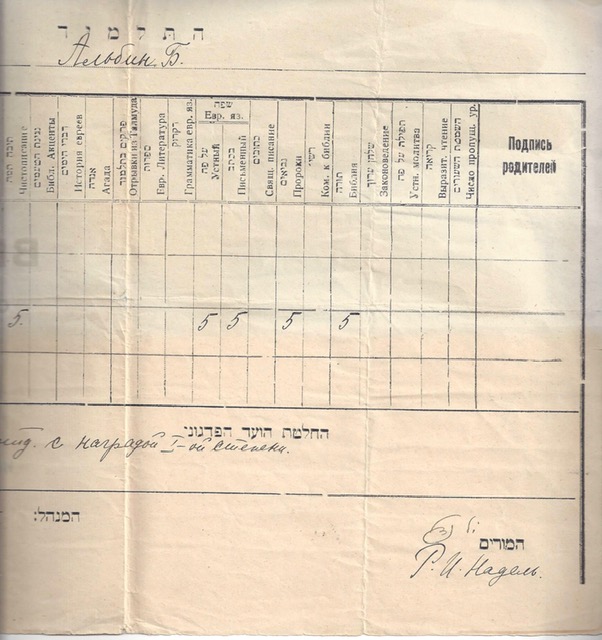 התלמיד
Альбин. Б.
שפה
Евр. яз.
Чистописание
נגינת הטעמים
Библ. Акценты
דברי הימים
История евреев
אגדה
Агада
פרקים בתלמוד
Отрывки из Талмуда
ספרות
Евр. Литература
דקדוק
Грамматика евр. яз.
על פה
Устный
בכתב
Письменный
כתובים
Свящ. писание
נביאים
Пророки
רש״י
Ком. к библии
תורה
Библия
שלחן ערוך
Законоведение
תפילה על פה
Устн. молитва
קריאה
Выразит. чтение
השמטת השעורים
Число пропущ. ур.
Подпись
родителей
5. 5 5 5 5
החלטת הועד הפדגוגי
с наградой I-ой степени.
המנהל:
המורים
Р. И. Надель.